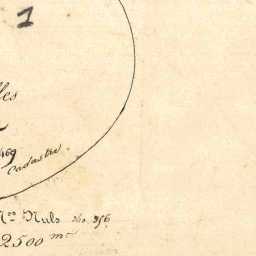 1
lles
469
Cadastre.
Nos Nuls 340. 356.
2500 m